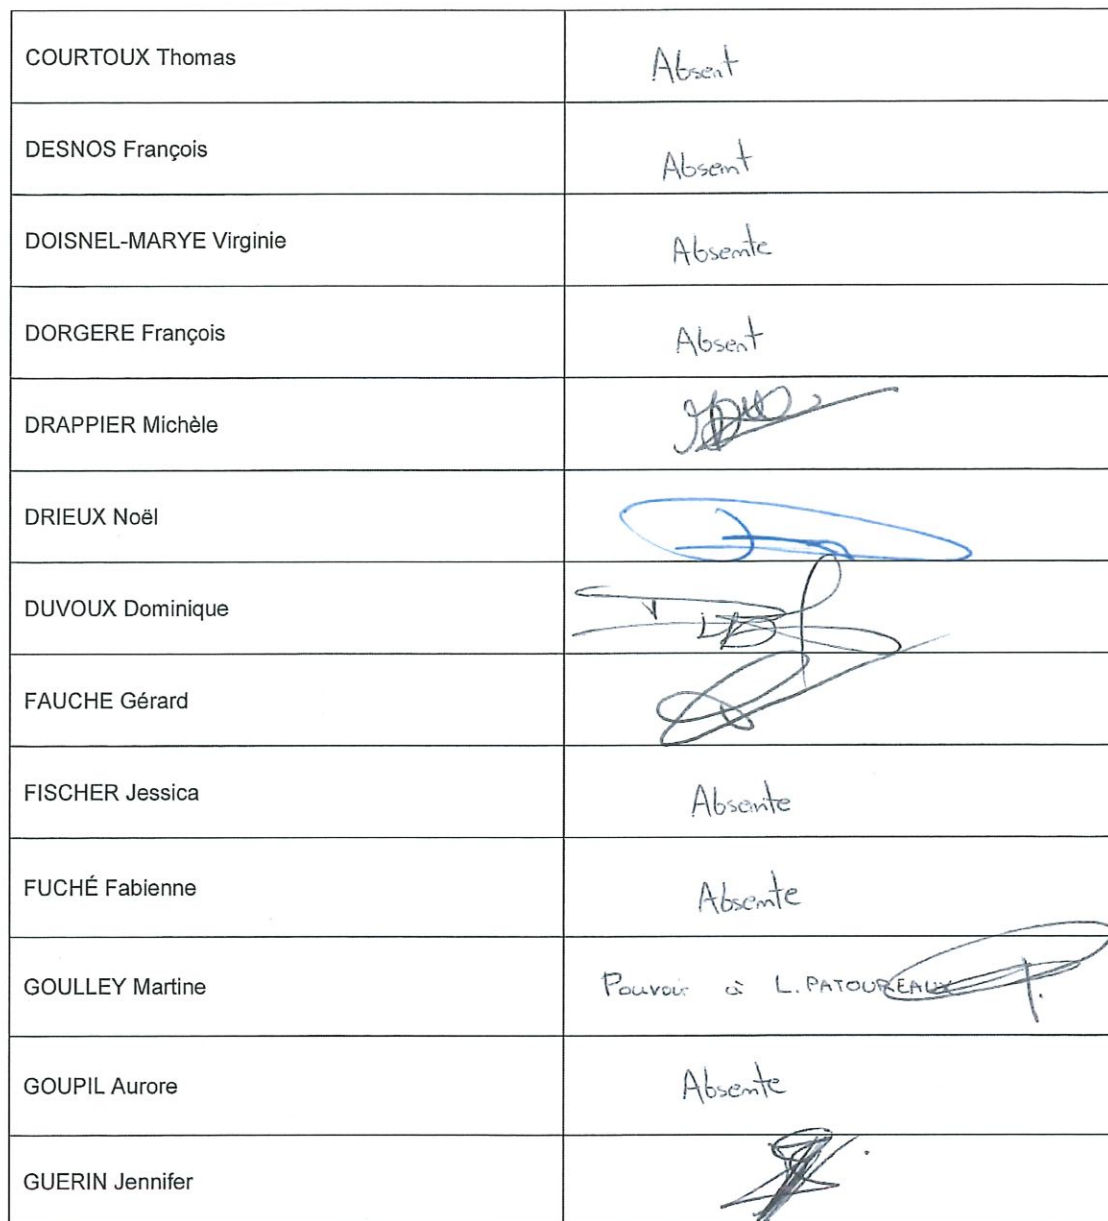 COURTOUX Thomas Absent
DESNOS François Absent
DOISNEL-MARYE Virginie Absente
DORGERE François Absent
DRAPPIER Michèle
DRIEUX Noël
DUVOUX Dominique
FAUCHE Gérard
FISCHER Jessica Absente
FUCHÉ Fabienne Absente
GOULLEY Martine Pouvoir à L. PATOUREAUX
GOUPIL Aurore Absente
GUERIN Jennifer